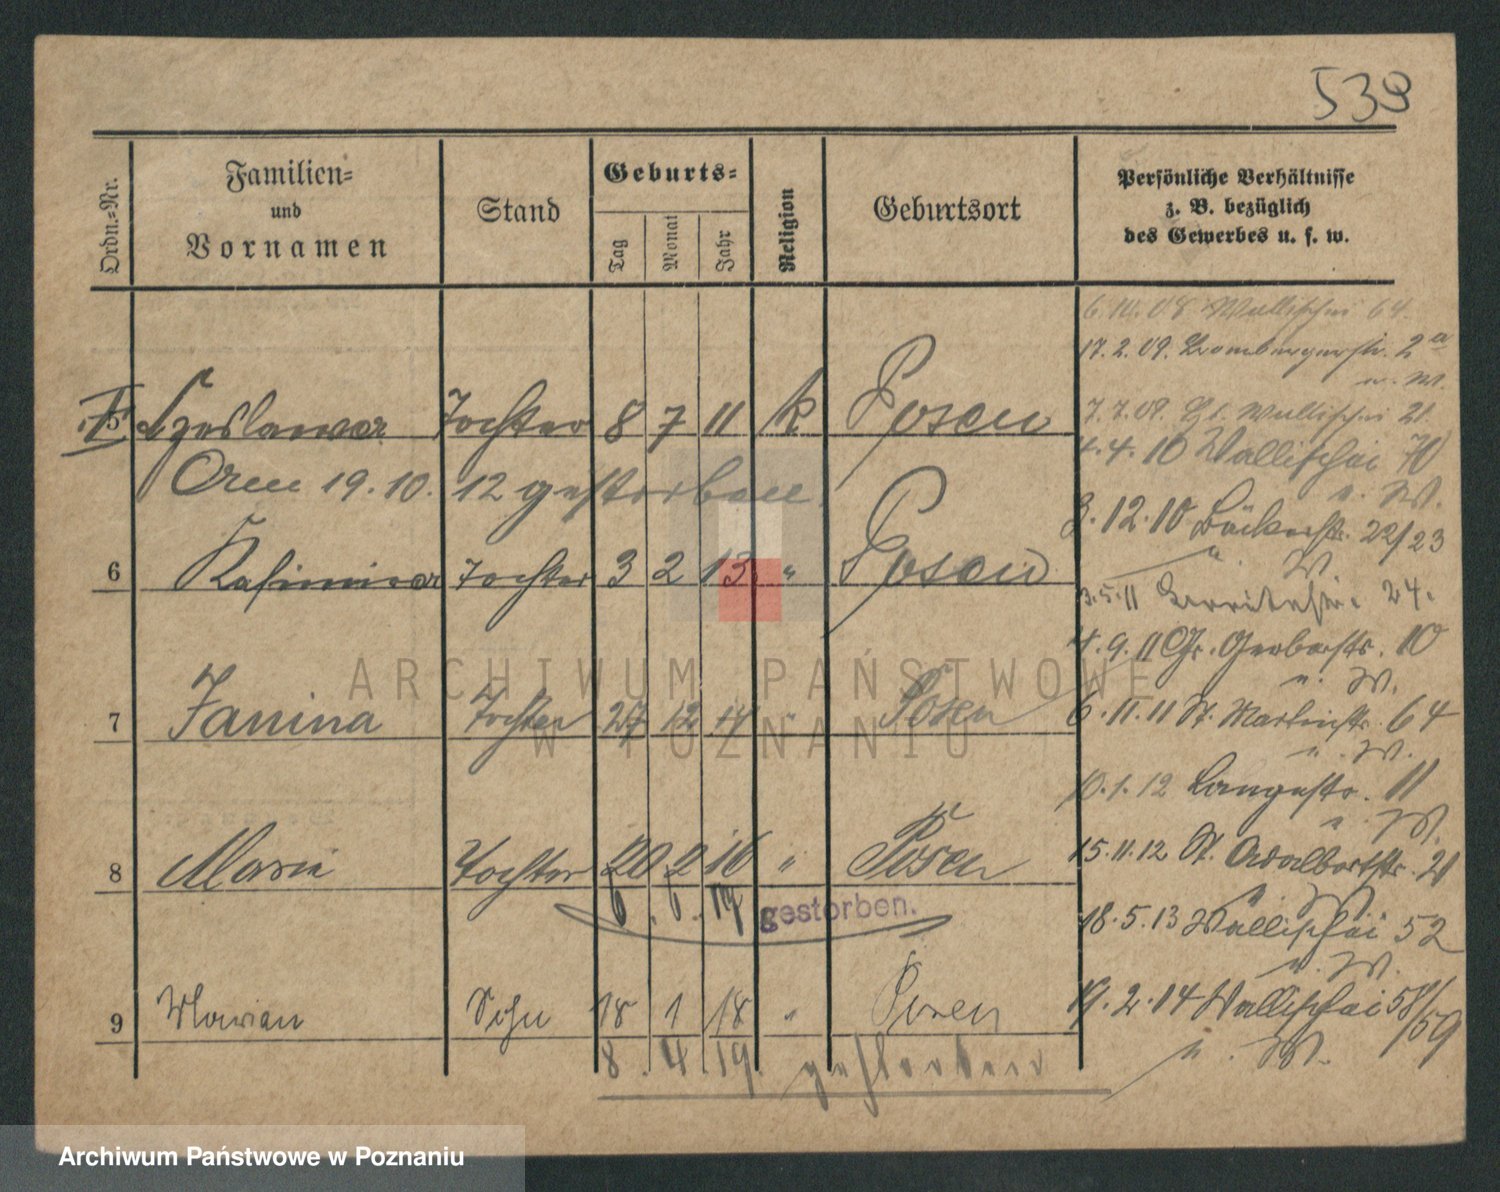 539
Ordn.=Nr.
Familien=
und
Vornamen
Stand
Geburts=
Tag
Monat
Jahr
Religion
Geburtsort
Persönliche Verhältnisse
z. B. bezüglich
des Gewerbes u. s. w.
6.10.08 Wallischei 64.
17.2.09. Brombergerstr. 2a
u. W.
5 Czeslawa Tochter 8 7 11 k Posen
7.7.09. Wallischei 21.
4.4.10 Wallischei 70
u. W.
Am 19.10.12 gestorben
3.12.10 Bäckerstr. 22/23
u. W.
6 Kasimira Tochter 3 2 13 " Posen
3.5.11 24.
4.9.11 Gr. Gerberstr. 10
u. W.
7 Janina Tochter 27 12 14 " Posen
6.11.11 St. Martinstr. 64
u. W.
10.1.12 Langestr. 11
u. W.
8 Maria Tochter 20 2 16 " Posen
15.11.12 St. Adalbertstr. 21
u. W.
6.6.17 gestorben.
18.5.13 Wallischei 52
u. W.
9 Marian Sohn 18 1 18 " Posen
19.2.14 Wallischei 58/59
u. W.
8.4.19. gestorben
ARCHIWUM PAŃSTWOWE
W POZNANIU
Archiwum Państwowe w Poznaniu